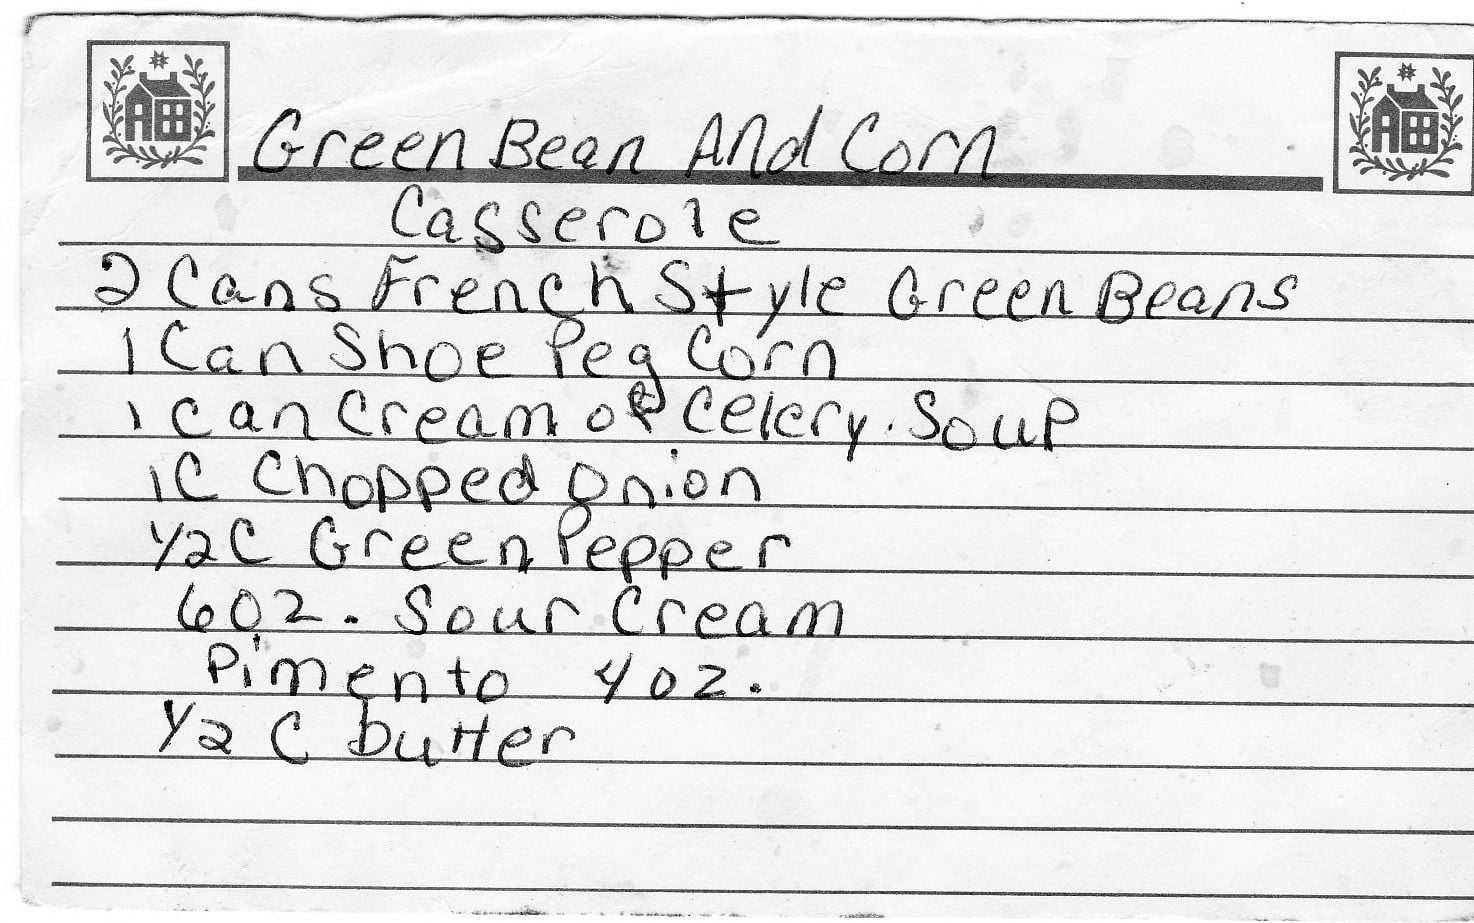 Green Bean And Corn
Casserole
2 Cans French Style Green Beans
1 Can Shoe Peg Corn
1 Can Cream of Celery. Soup
1C Chopped Onion
1/2 C Green Pepper
6 oz. Sour Cream
Pimento 4 oz.
1/2 C butter